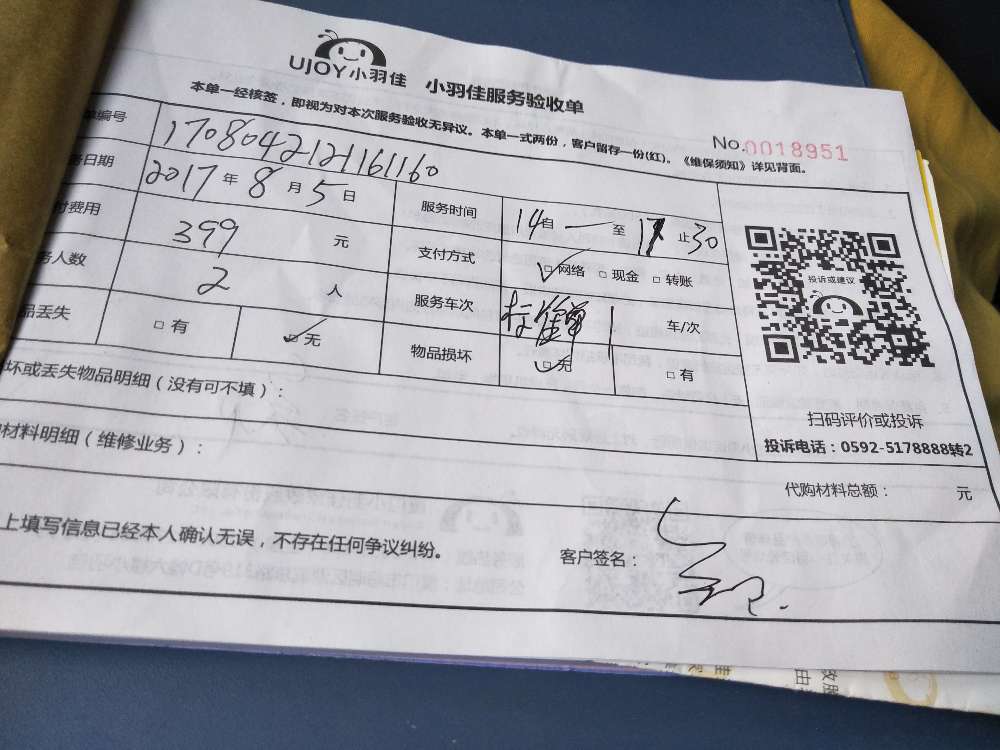 UJOY小羽佳 小羽佳服务验收单
本单一经核签，即视为对本次服务验收无异议。本单一式两份，客户留存一份(红)。《维保须知》详见背面。
No.0018951
编号 1708042121161160
日期 2017年8月5日 服务时间 14自一至17止30
付费用 399元 支付方式 ☑网络 □现金 □转账
人数 2人 服务车次 车/次
品丢失 □有 ☑无 物品损坏 ☑无 □有
投诉或建议
扫码评价或投诉
投诉电话：0592-5178888转2
坏或丢失物品明细（没有可不填）：
材料明细（维修业务）：
代购材料总额： 元
上填写信息已经本人确认无误，不存在任何争议纠纷。 客户签名：